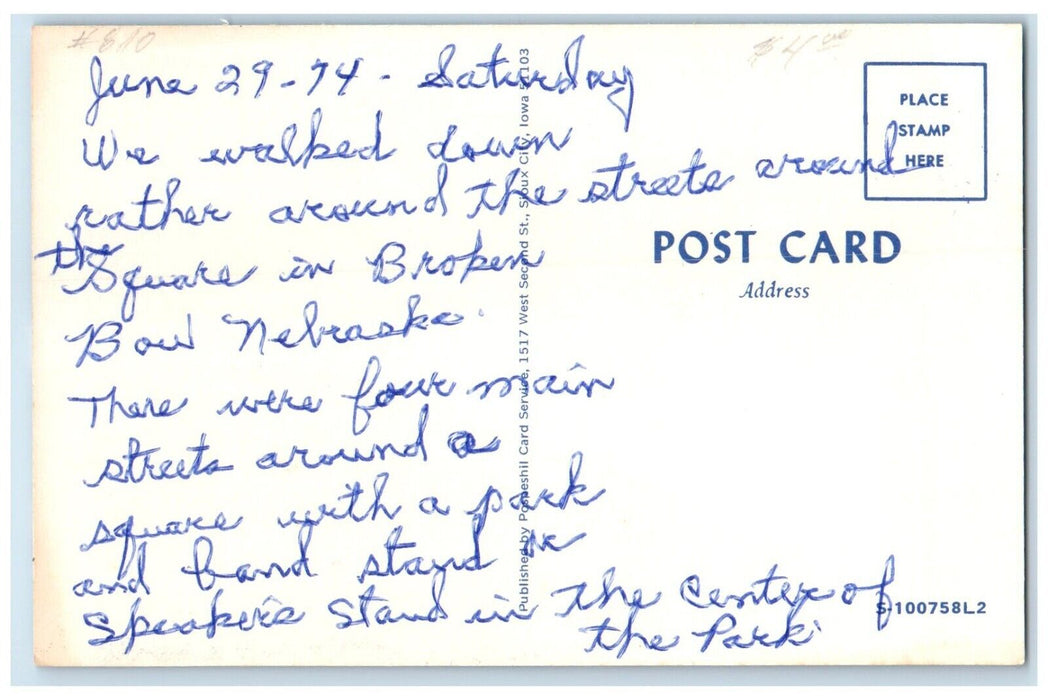 #810
$4.00
June 29-74 - Saturday
We walked down
rather around the streets around
the Square in Broken
Bow Nebraska.
There were four main
streets around a
square with a park
and band stand or
Speakers Stand in the Center of
the Park
Published by Dunlap Post Card Service, 1517 West Second St., Sioux City, Iowa 51103
PLACE
STAMP
HERE
POST CARD
Address
S-100758L2